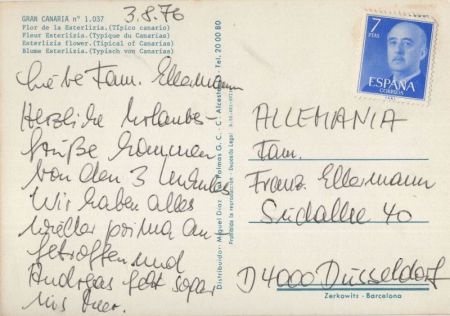 GRAN CANARIA nº 1.037
Flor de la Esterlizia. (Típico canario)
Fleur Esterlizia. (Typique du Canarias)
Esterlizia flower. (Tipical of Canarias)
Blume Esterlizia. (Typisch von Canarias)
3.8.76
Liebe Fam. Ellermann
Herzliche Urlaubs-
Grüße kommen
von den 3
Wir haben alles
wieder prima an-
getroffen und
Andreas geht sogar
ins Meer.
Distribuidor: Miguel Diaz - Palmas G. C. - C. Alcest Tel. 20 00 80
Prohibida la reproducción - Depósito Legal
7
PTAS
ESPAÑA
CORREOS
ALLEMANIA
Fam.
Franz Ellermann
Südallee 40
D 4000 Düsseldorf
Zerkowitz - Barcelona